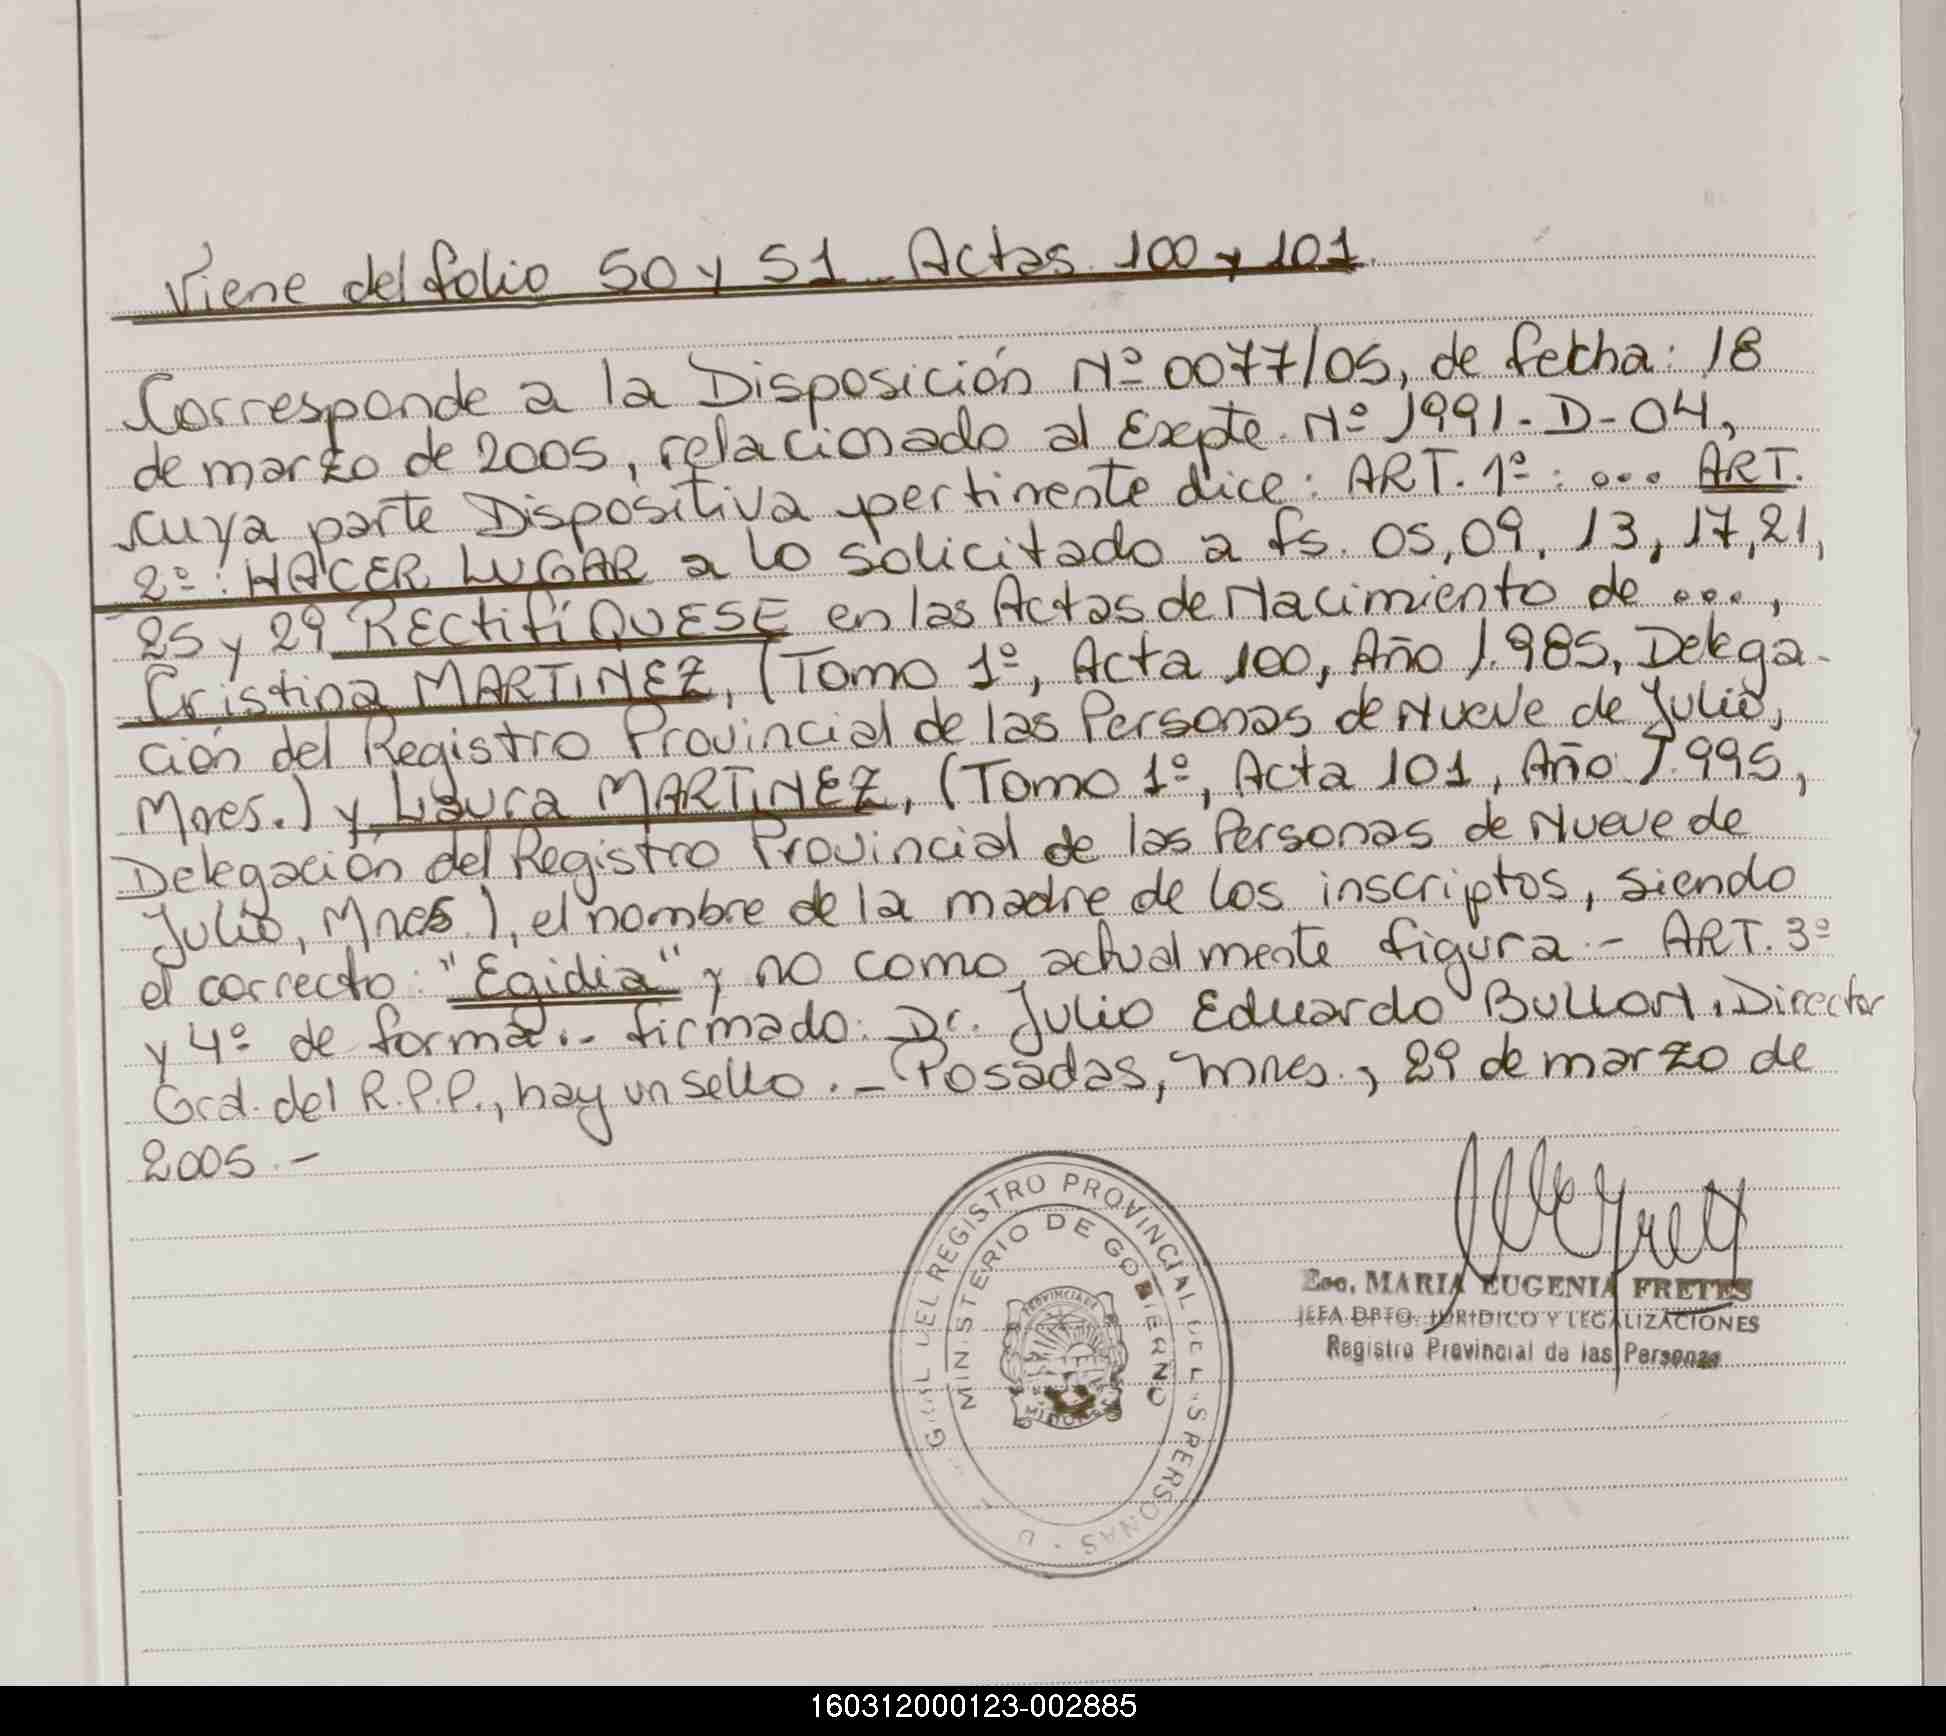 Viene del folio 50 y 51 - Actas 100 y 101.
Corresponde a la Disposición Nº 0077/05, de fecha: 18
de marzo de 2005, relacionado al Expte. Nº 1991-D-04,
cuya parte Dispositiva pertinente dice: ART. 1º: ... ART.
2º: HACER LUGAR a lo solicitado a fs. 05, 09, 13, 17, 21,
25 y 29 RECTIFÍQUESE en las Actas de Nacimiento de ...,
Cristina MARTINEZ, (Tomo 1º, Acta 100, Año 1.985, Delega-
ción del Registro Provincial de las Personas de Nueve de Julio,
Mnes.) y Laura MARTINEZ, (Tomo 1º, Acta 101, Año 1.995,
Delegación del Registro Provincial de las Personas de Nueve de
Julio, Mnes.), el nombre de la madre de los inscriptos, siendo
el correcto: "Egidia" y no como actualmente figura.- ART. 3º
y 4º de forma.- firmado: Dr. Julio Eduardo BULLON, Director
Gral. del R.P.P., hay un sello.- Posadas, Mnes., 29 de marzo de
2005.-
GRAL DEL REGISTRO PROVINCIAL DE LAS PERSONAS
MINISTERIO DE GOBIERNO
PROVINCIA DE
MISIONES
Esc. MARIA EUGENIA FRETES
JEFA DPTO. JURIDICO Y LEGALIZACIONES
Registro Provincial de las Personas
160312000123-002885